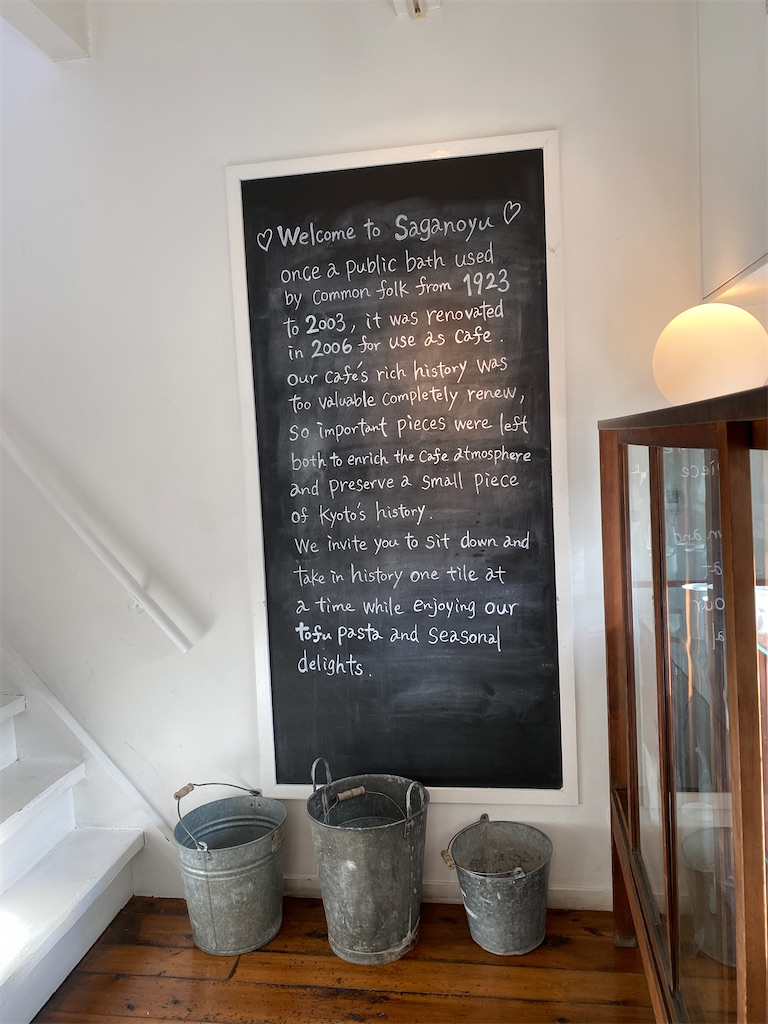 ♡Welcome to Saganoyu♡
once a public bath used
by common folk from 1923
to 2003, it was renovated
in 2006 for use as cafe.
our cafe's rich history was
too valuable completely renew,
so important pieces were left
both to enrich the cafe atmosphere
and preserve a small piece
of Kyoto's history.
We invite you to sit down and
take in history one tile at
a time while enjoying our
tofu pasta and seasonal
delights.